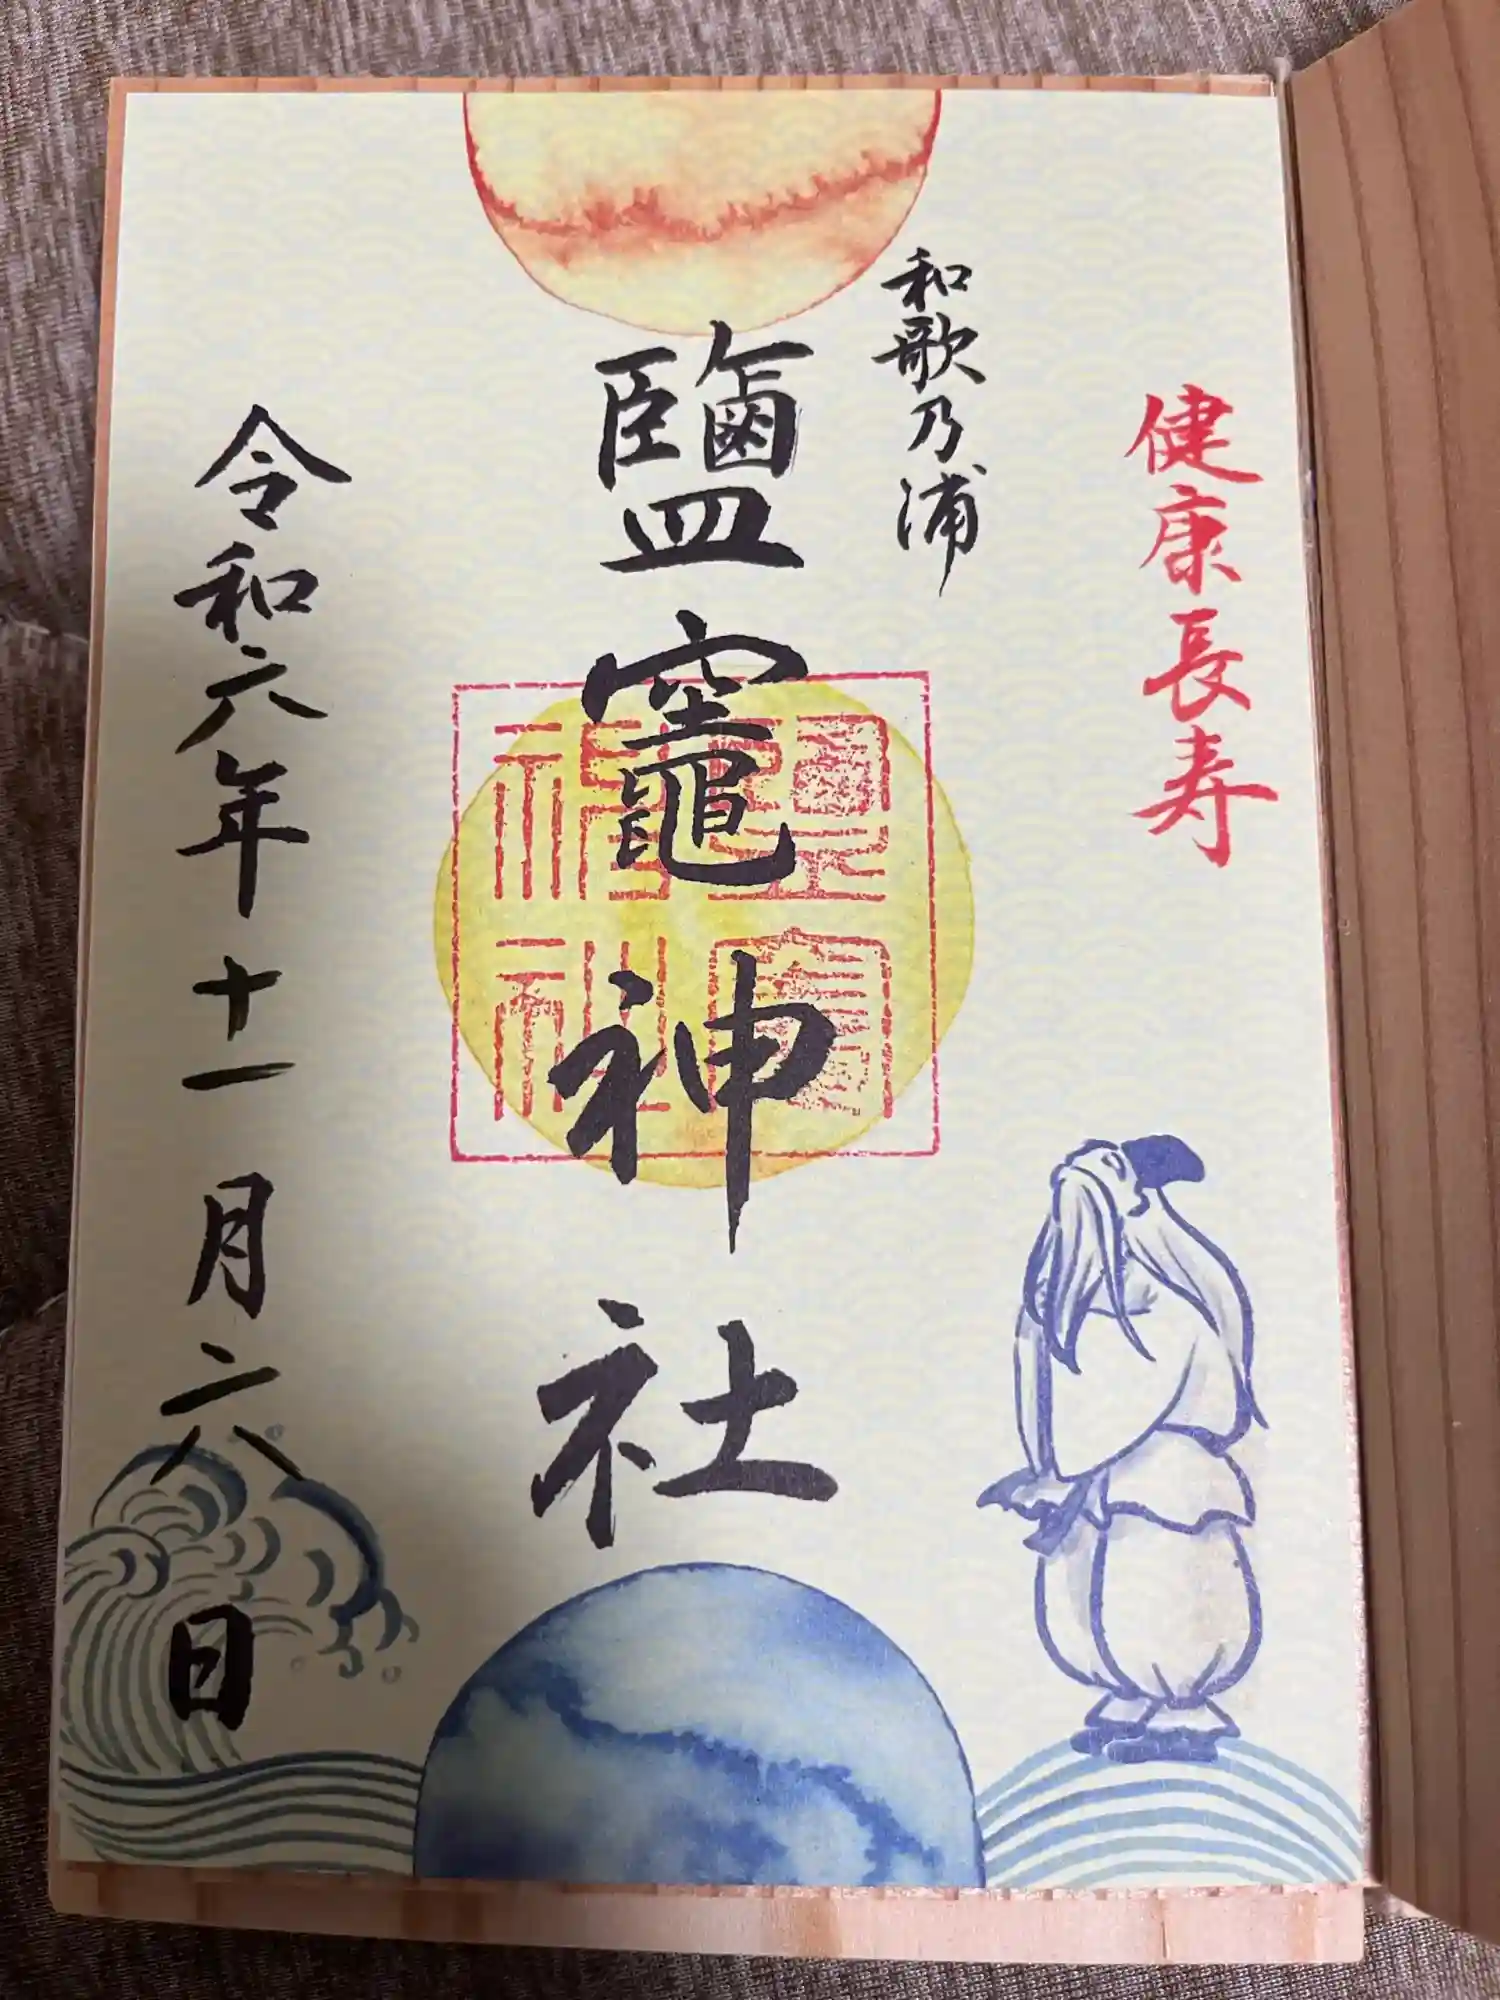 健康長寿
和歌乃浦
鹽竈神社
鹽竈神社
令和六年十一月六日